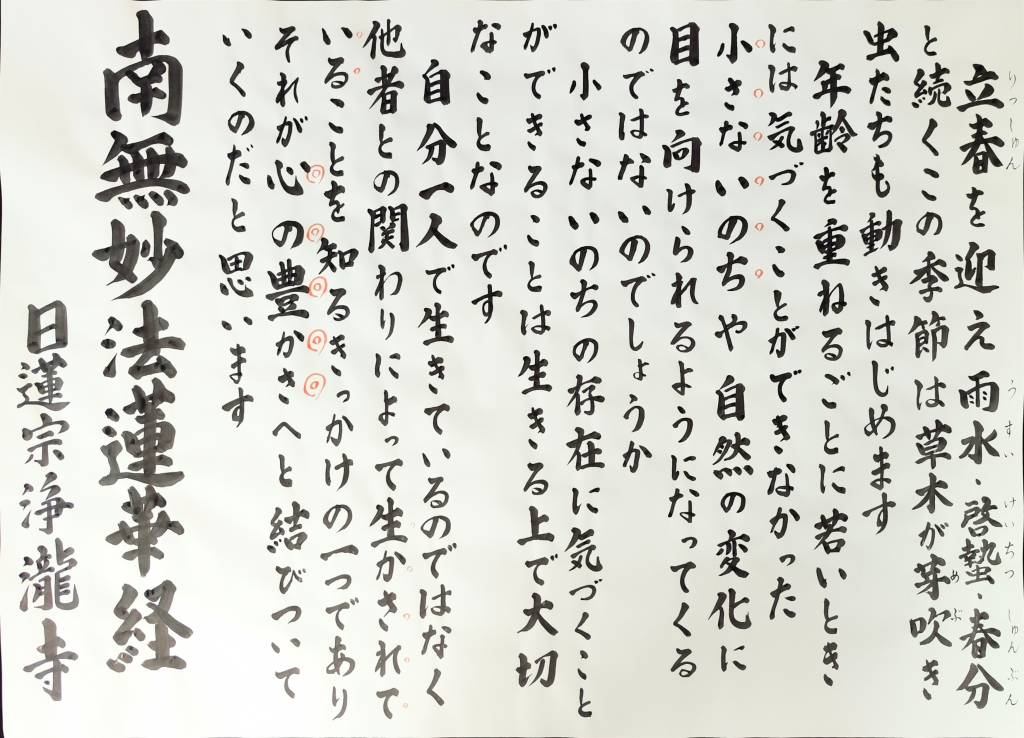 立春を迎え雨水・啓蟄・春分
と続くこの季節は草木が芽吹き
虫たちも動きはじめます
年齢を重ねるごとに若いとき
には気づくことができなかった
小さないのちや自然の変化に
目を向けられるようになってくる
のではないのでしょうか
小さないのちの存在に気づくこと
ができることは生きる上で大切
なことなのです
自分一人で生きているのではなく
他者との関わりによって生かされて
いることを知るきっかけの一つであり
それが心の豊かさへと結びついて
いくのだと思います
南無妙法蓮華経
日蓮宗浄瀧寺
りっしゅん
うすい
けいちつ
しゅんぶん
めぶ